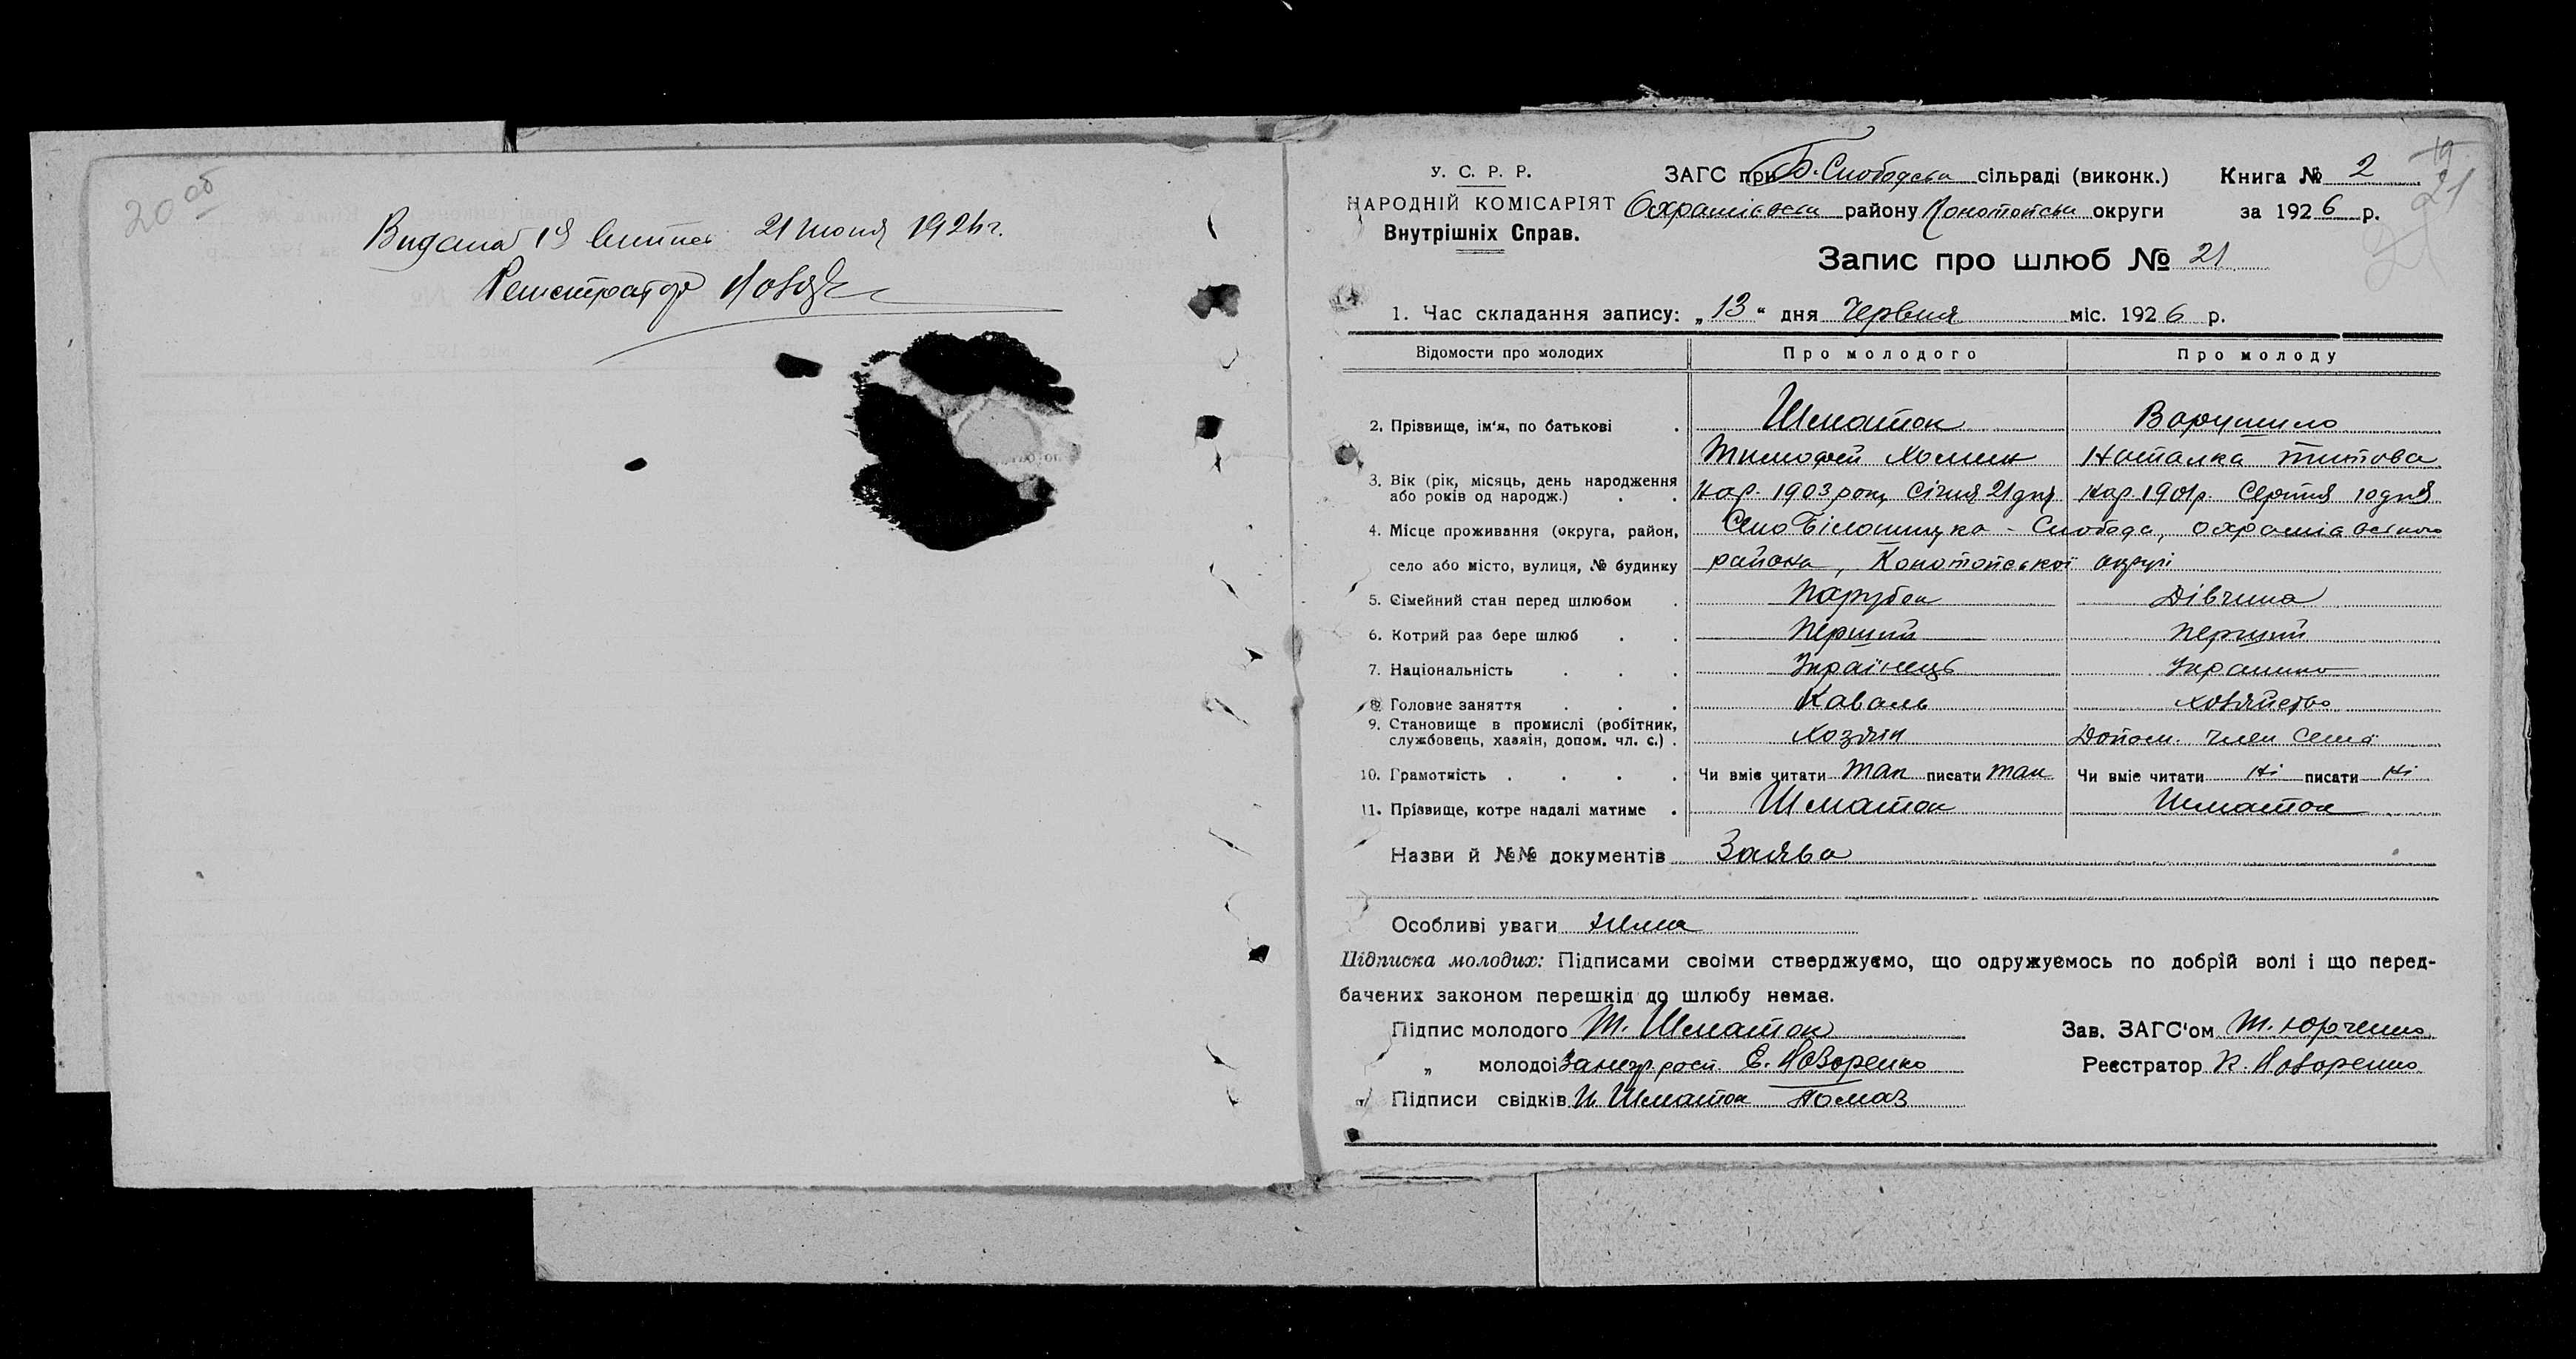 20 об
Видана 19 виписка 21 июня 1926 г.
Регистратор
У. С. Р. Р.
НАРОДНІЙ КОМІСАРІЯТ
Внутрішніх Справ.
ЗАГС при Б. Слободськ сільраді (виконк.) Книга № 2
21
району Конотопськ округи за 1926 р.
Запис про шлюб № 21
1. Час складання запису: „13“ дня Червня міс. 1926 р.
Відомости про молодих Про молодого Про молоду
2. Прізвище, ім'я, по батькові . Шматок
Тимофей Хомич Наталка Титова
3. Вік (рік, місяць, день народження
або років од народж.) . . Нар. 1903 року Січня 21 дня Нар. 1901 р. Серпня 10 дня
4. Місце проживання (округа, район, Село Білошицка-Слобода,
село або місто, вулиця, № будинку района, Конотопської округі
5. Сімейний стан перед шлюбом . Парубок Дівчина
6. Котрий раз бере шлюб . . Перший Перший
7. Національність . . . Українець Українка
8. Головне заняття . . . Коваль хозяйство
9. Становище в промислі (робітник,
службовець, хазяін, допом. чл. с.) . Хозяін Допом. член семї
10. Грамотність . . . . Чи вміє читати так писати так Чи вміє читати Ні писати Ні
11. Прізвище, котре надалі матиме . Шматок Шматок
Назви й №№ документів Заява
Особливі уваги Нема
Підписка молодих: Підписами своіми стверджуємо, що одружуємось по добрій волі і що перед-
бачених законом перешкід до шлюбу немає.
Підпис молодого Т. Шматок Зав. ЗАГС'ом Т. Юрченко
„ молодоі Є. Назоренко Реєстратор К. Назоренко
Підписи свідків И Шматок Помаз